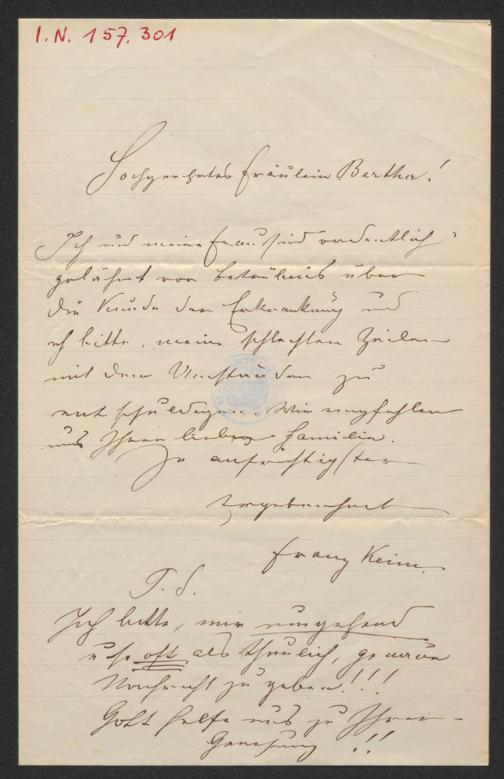 I.N. 157.301
Hochgeehrtes Fräulein Bertha!
Ich und meine Frau sind ordentlich
gelähmt vor Betrübnis über
die Kunde der Erkrankung und
ich bitte, meine schlechten Zeilen
mit den Umständen zu
entschuldigen. Wir empfehlen
uns Ihrer lieben Familie.
In aufrichtigster
Ergebenheit
Franz Keim
P. S.
Ich bitte, mir umgehend
u. so oft als thunlich, genaue
Nachricht zu geben!!!
Gott helfe uns zu Ihrer
Genesung!!